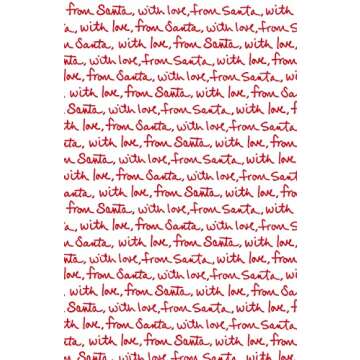 from Santa, with love, from Santa, with
a, with love, from Santa, with love, from S
m Santa, with love, from Santa, with love,
anta, with love, from Santa, with love, from
love, from Santa, with love, from Santa, wi
with love, from Santa, with love, from Sa
Santa, with love, from Santa, with love, f
th love, from Santa, with love, from Santa,
ta, with love, from Santa, with love, from
m Santa, with love, from Santa, with love
with love, from Santa, with love, from San
anta, with love, from Santa, with love, fro
from Santa, with love, from Santa, with
a, with love, from Santa, with love, from S
m Santa, with love, from Santa, with love,
anta, with love, from Santa, with love, from
love, from Santa, with love, from Santa, wi
with love, from Santa, with love, from Sa
Santa, with love, from Santa, with love, f
th love, from Santa, with love, from Santa,
ta, with love, from Santa, with love, from
m Santa, with love, from Santa, with love